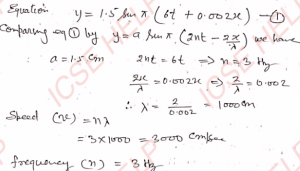 Equation y = 1.5 sin π (6t + 0.002x) — ①
Comparing eq ① by y = a sin π (2nt - 2x/λ) we have
∴ a = 1.5 cm 2nt = 6t ⇒ n = 3 Hz
2x/λ = 0.002x ⇒ 2/λ = 0.002
∴ λ = 2/0.002 = 1000 cm
Speed (v) = nλ
= 3×1000 = 3000 cm/sec
frequency (n) = 3 Hz
ICSE HELP